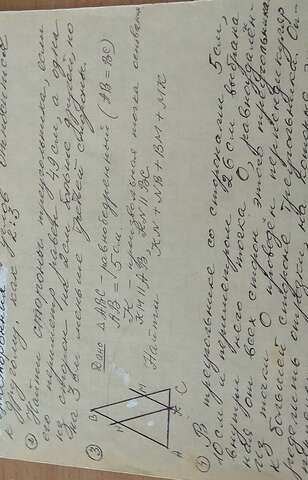 углу, как 2:3
② Найти стороны треугольника, если
его периметр равен 49 см, а одна
из сторон на 2 см больше другой, но
на 3 см меньше третьей стороны.
③ Дано △ ABC - равнобедренный (AB = BC)
AB = 15 см.
K - произвольная точка основания
KM || AB, KN || BC
Найти KN + NB + BM + MK
B
N
M
A
K
C
④ В треугольнике со сторонами 5 см,
10 см и периметром 26 см выбрана
внутри него точка O, равноудалён-
ная от всех сторон этого треугольника.
Из точки O проведён перпендикуляр
к большей стороне треугольника. О-
пределить